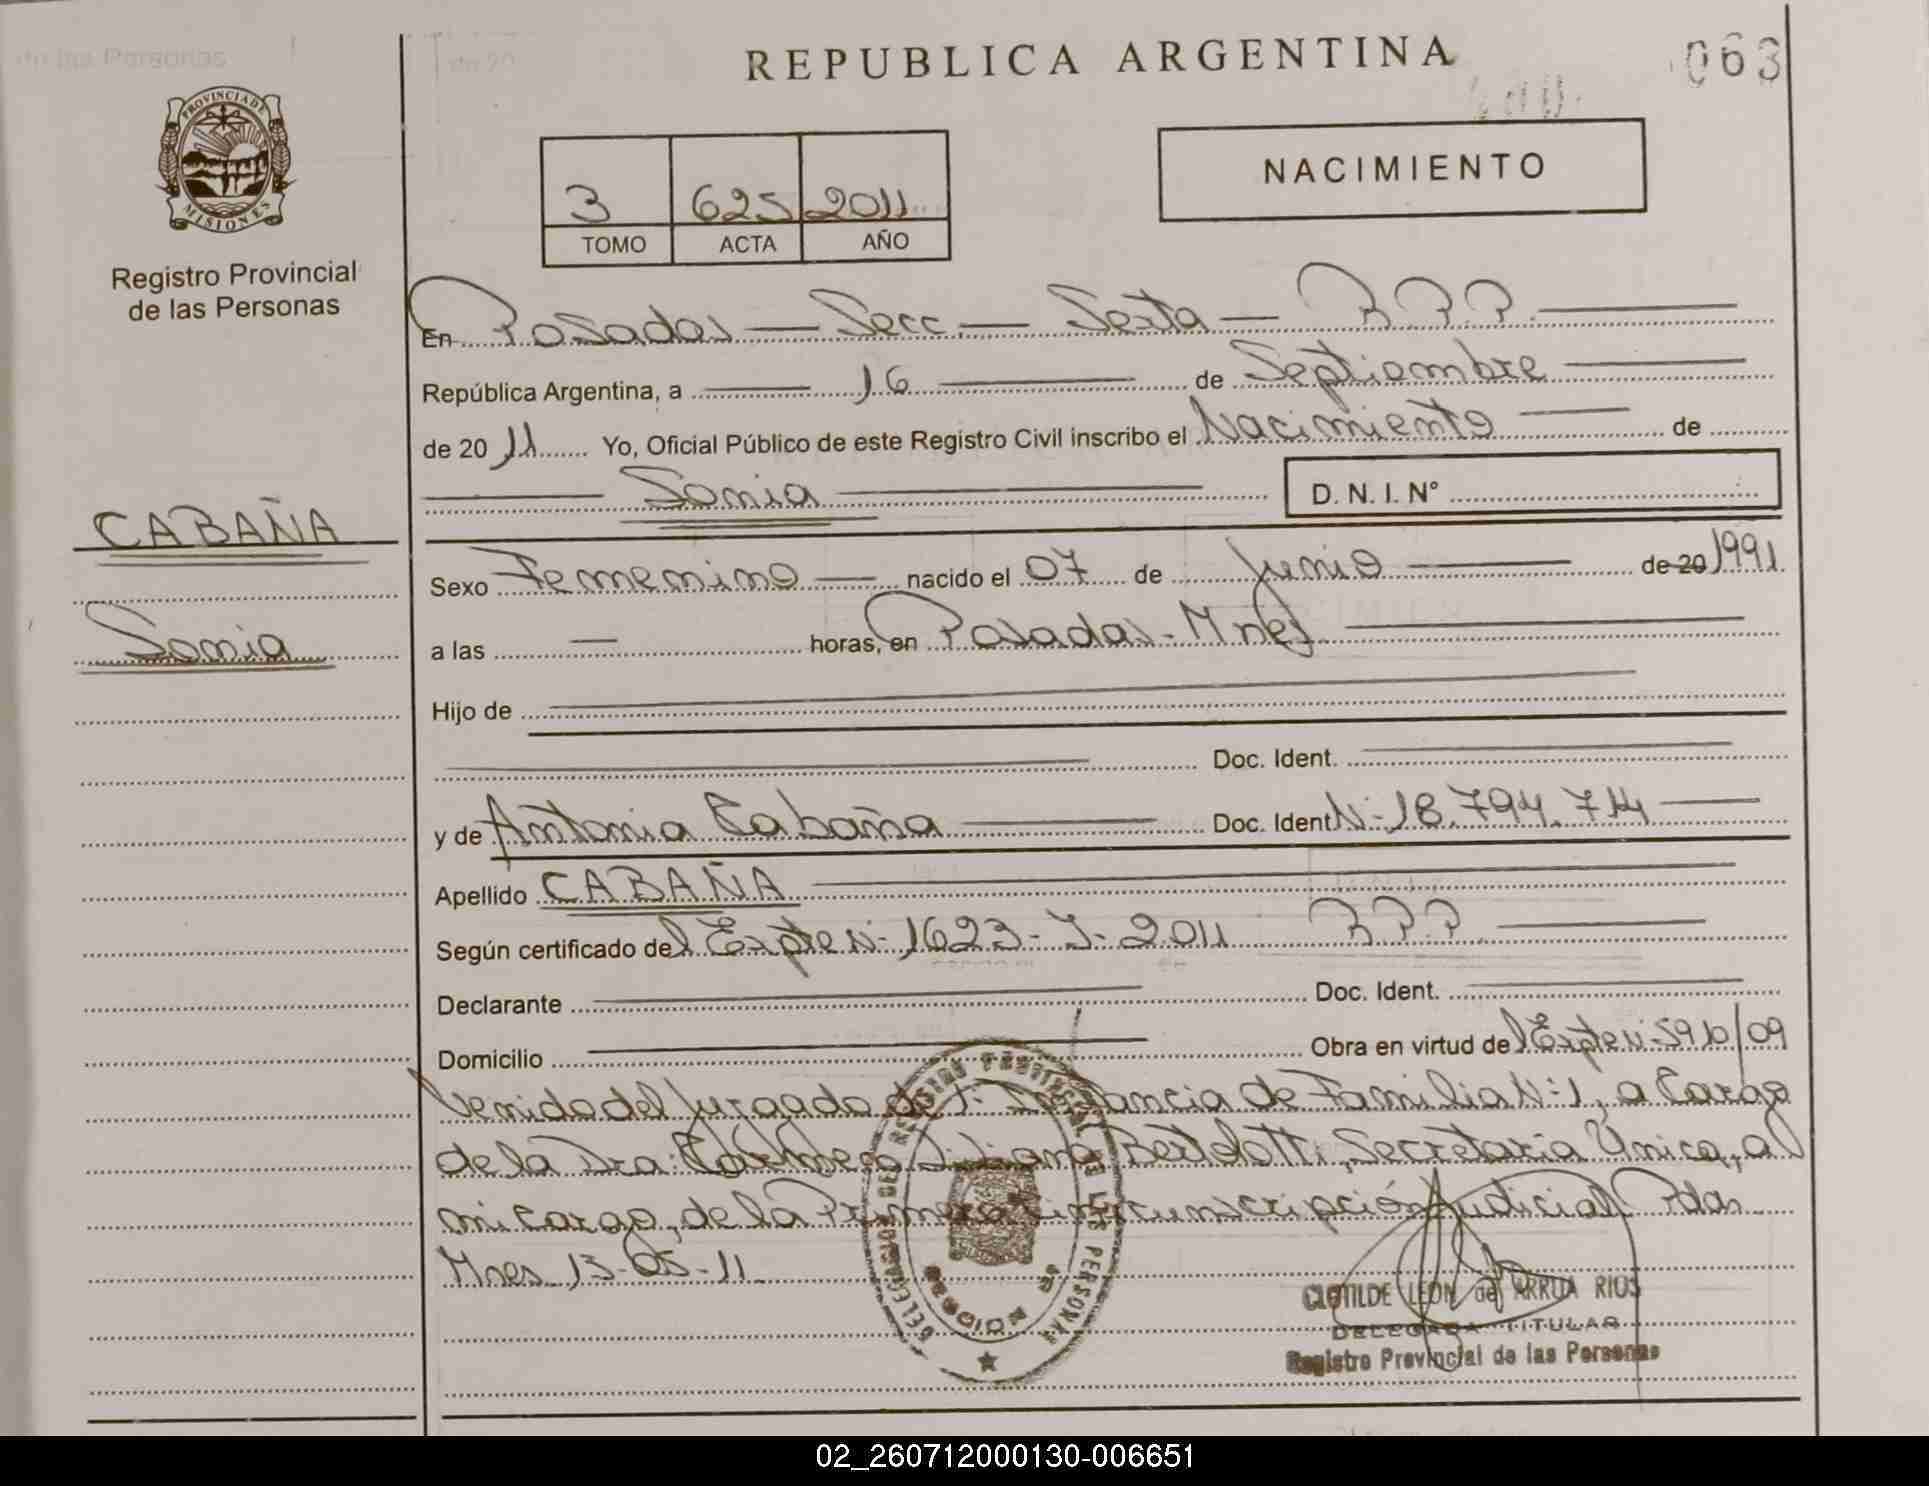 REPUBLICA ARGENTINA
063
PROVINCIA DE MISIONES
Registro Provincial
de las Personas
3 625 2011
TOMO ACTA AÑO
NACIMIENTO
En Posadas — Secc. — Sexta — R.P.P.
República Argentina, a 16 de Septiembre
de 2011 Yo, Oficial Público de este Registro Civil inscribo el Nacimiento de
Sonia
D. N. I. N°
CABAÑA
Sonia
Sexo Femenino nacido el 07 de Junio de 20 1991
a las — horas, en Posadas - Mnes
Hijo de
Doc. Ident.
y de Antonia Cabaña Doc. Ident N- 18.794.714
Apellido CABAÑA
Según certificado del Expte N- 1623-J-2011 R.P.P.
Declarante Doc. Ident.
Domicilio Obra en virtud del Expte N- 5910/09
Venido del Juzgado de 1- Instancia de Familia N-1, a Cargo
de la Dra: Bertolotti, Secretaria Única, a
mi cargo, de la Primera Circunscripción Judicial Pdas
Mnes 13-05-11
CLOTILDE LEON de ARRUA RIOS
DELEGADA TITULAR
Registro Provincial de las Personas
02_260712000130-006651